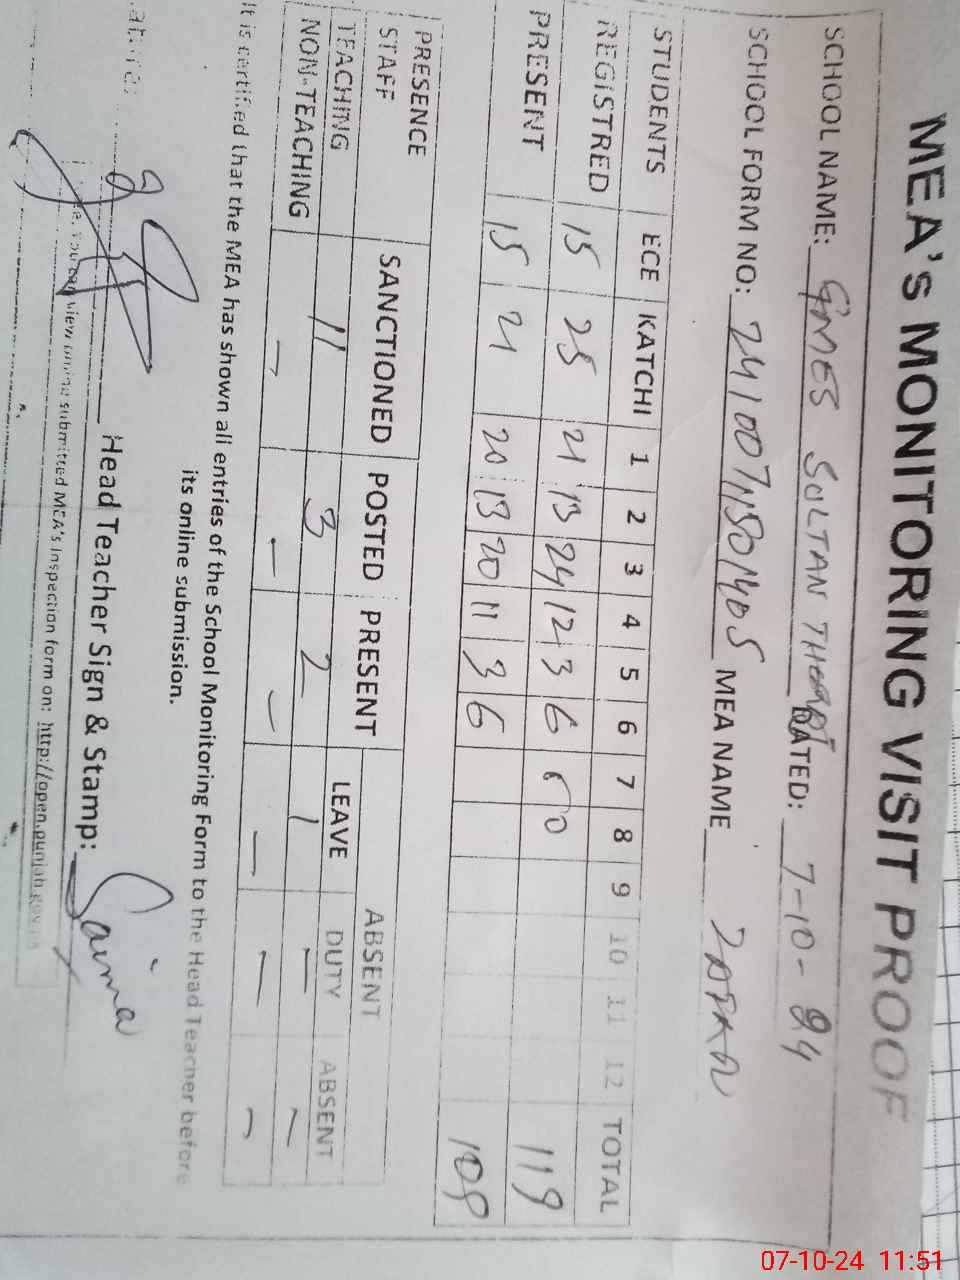 MEA's MONITORING VISIT PROOF
SCHOOL NAME: GMES SULTAN DATED: 7-10-24
SCHOOL FORM NO: MEA NAME
STUDENTS ECE KATCHI 1 2 3 4 5 6 7 8 9 10 11 12 TOTAL
REGISTRED 15 25 21 13 24 12 3 6 119
PRESENT 15 21 20 13 20 11 3 6 109
PRESENCE SANCTIONED POSTED PRESENT ABSENT
STAFF LEAVE DUTY ABSENT
TEACHING 11 3 2 1 – –
NON-TEACHING – – – – – –
It is certified that the MEA has shown all entries of the School Monitoring Form to the Head Teacher before
its online submission.
Head Teacher Sign & Stamp: Saima
view online submitted MEA's Inspection form on: http://open.punjab.gov
07-10-24 11:51